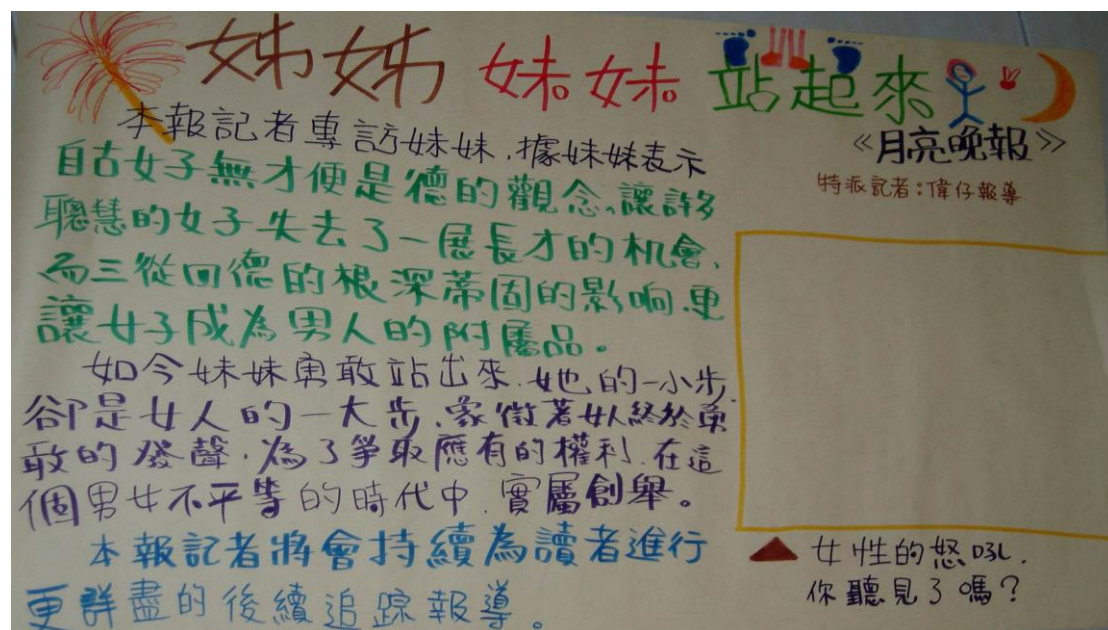 姊姊妹妹站起來
《月亮晚報》
特派記者：偉仔報導
本報記者專訪妹妹，據妹妹表示
自古女子無才便是德的觀念，讓許多
聰慧的女子失去了一展長才的机會、
而三從四德的根深蒂固的影响，更
讓女子成為男人的附屬品。
如今妹妹勇敢站出來，她的一小步，
卻是女人的一大步，象徵著女人終於勇
敢的發聲，為了爭取應有的權利，在這
個男女不平等的時代中，實屬創舉。
本報記者將會持續為讀者進行
更詳盡的後續追踪報導。
女性的怒吼，
你聽見了嗎？